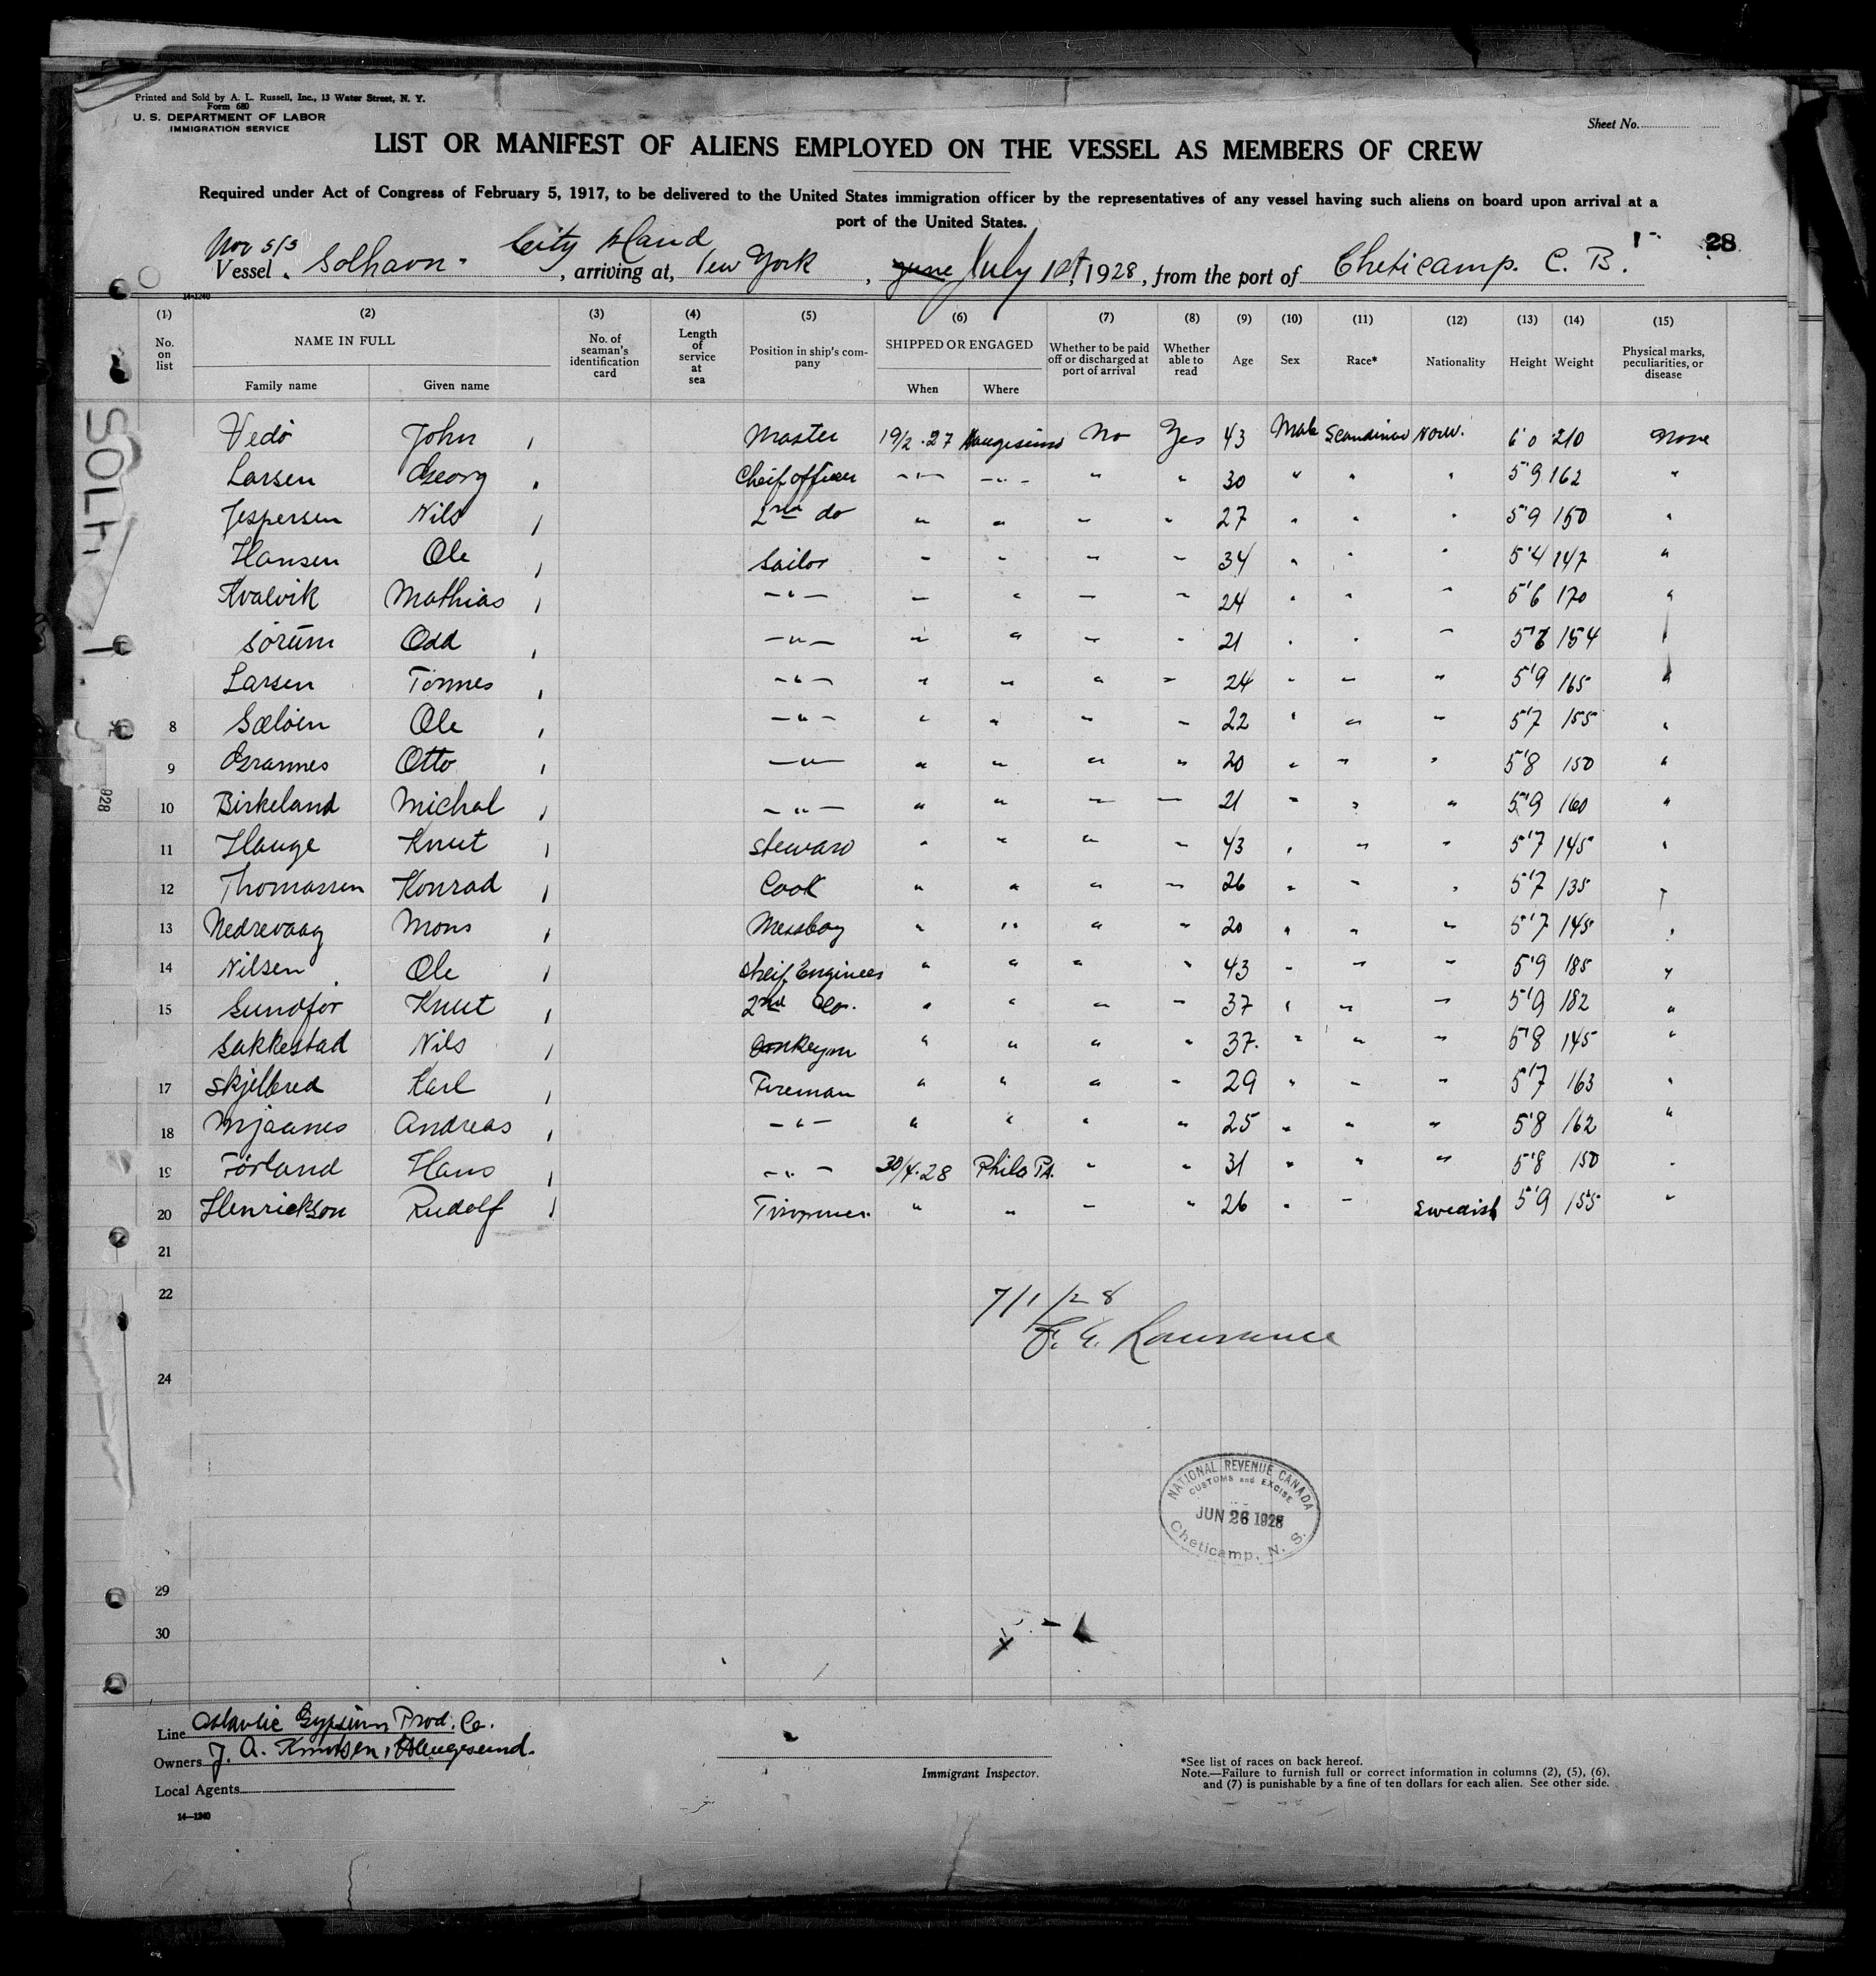 Printed and Sold by A. L. Russell, Inc., 13 Water Street, N. Y.
Form 680
U. S. DEPARTMENT OF LABOR
IMMIGRATION SERVICE
Sheet No.
LIST OR MANIFEST OF ALIENS EMPLOYED ON THE VESSEL AS MEMBERS OF CREW
Required under Act of Congress of February 5, 1917, to be delivered to the United States immigration officer by the representatives of any vessel having such aliens on board upon arrival at a
port of the United States.
28
Nor S/S City Island
Vessel Solhavn , arriving at, New York , June July 1st, 1928, from the port of Cheticamp. C. B.
14-1240
(1) (2) (3) (4) (5) (6) (7) (8) (9) (10) (11) (12) (13) (14) (15)
No. on list NAME IN FULL Family name Given name No. of seaman's identification card Length of service at sea Position in ship's company SHIPPED OR ENGAGED When Where Whether to be paid off or discharged at port of arrival Whether able to read Age Sex Race* Nationality Height Weight Physical marks, peculiarities, or disease
Vedö John Master 19/2.27 Haugesund No Yes 43 Male Scandinav Norw. 6'0 210 None
Larsen Georg Cheif officer -"- -"- " " 30 " " " 5'9 162 "
Jespersen Nils 2nd do " " " " 27 " " " 5'9 150 "
Hansen Ole Sailor " " " " 34 " " " 5'4 147 "
Kvalvik Mathias -"- " " " " 24 " " " 5'6 170 "
Sörum Odd -"- " " " " 21 " " " 154
Larsen Tönnes -"- " " " " 24 " " " 5'9 165 "
8 Sæloen Ole -"- " " " " 22 " " " 5'7 155 "
9 Grannes Otto -"- " " " " 20 " " " 5'8 150 "
10 Birkeland Michal -"- " " " " 21 " " " 5'9 160 "
11 Hauge Knut Steward " " " " 43 " " " 5'7 145 "
12 Thomassen Konrad Cook " " " " 26 " " " 5'7 135 "
13 Nedrevaag Mons Messboy " " " " 20 " " " 5'7 145 "
14 Nilsen Ole Cheif Engineer " " " " 43 " " " 5'9 185 "
15 Sundför Knut 2nd do. " " " " 37 " " " 5'9 182 "
Sakkestad Nils " " " " 37 " " " 5'8 145 "
17 Skjelbred Karl Fireman " " " " 29 " " " 5'7 163 "
18 Mjaanes Andreas -"- " " " " 25 " " " 5'8 162 "
19 Förland Hans -"- 30/4.28 Phila Pa. " " 31 " " " 5'8 150 "
20 Henrickson Rudolf Trimmer " " " " 26 " " Swedish 5'9 155 "
21
22
7/1/28
Lawrence
24
NATIONAL REVENUE CANADA
CUSTOMS and EXCISE
JUN 26 1928
Cheticamp, N. S.
29
30
SOLH
928
Line Atlantic Gypsum Prod. Co.
Owners J. A. Knutsen, Haugesund.
Local Agents
14—1240
Immigrant Inspector.
*See list of races on back hereof.
Note.—Failure to furnish full or correct information in columns (2), (5), (6),
and (7) is punishable by a fine of ten dollars for each alien. See other side.